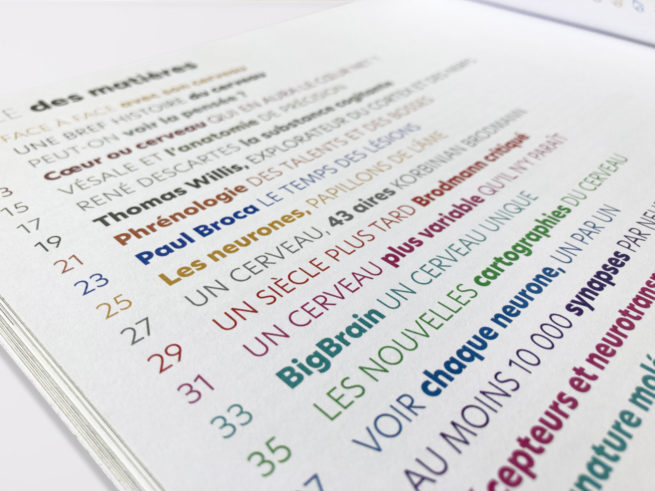 E des matières
FACE À FACE avec son cerveau
UNE BREF HISTOIRE du cerveau
PEUT-ON voir la pensée ?
3 Cœur ou cerveau QUI EN AURA LE CŒUR NET ?
15 VÉSALE ET l'anatomie DE PRÉCISION
17 RENÉ DESCARTES la substance cogitante
19 Thomas Willis, EXPLORATEUR DU CORTEX ET DES NERFS
21 Phrénologie DES TALENTS ET DES BOSSES
23 Paul Broca LE TEMPS DES LÉSIONS
25 Les neurones, PAPILLONS DE L'ÂME
27 UN CERVEAU, 43 aires KORBINIAN BRODMANN
29 UN SIÈCLE PLUS TARD Brodmann critiqué
31 UN CERVEAU plus variable QU'IL N'Y PARAÎT
33 BigBrain UN CERVEAU UNIQUE
35 LES NOUVELLES cartographies DU CERVEAU
37 VOIR chaque neurone, UN PAR UN
AU MOINS 10 000 synapses PAR NEU
cepteurs et neurotransm
nature molé